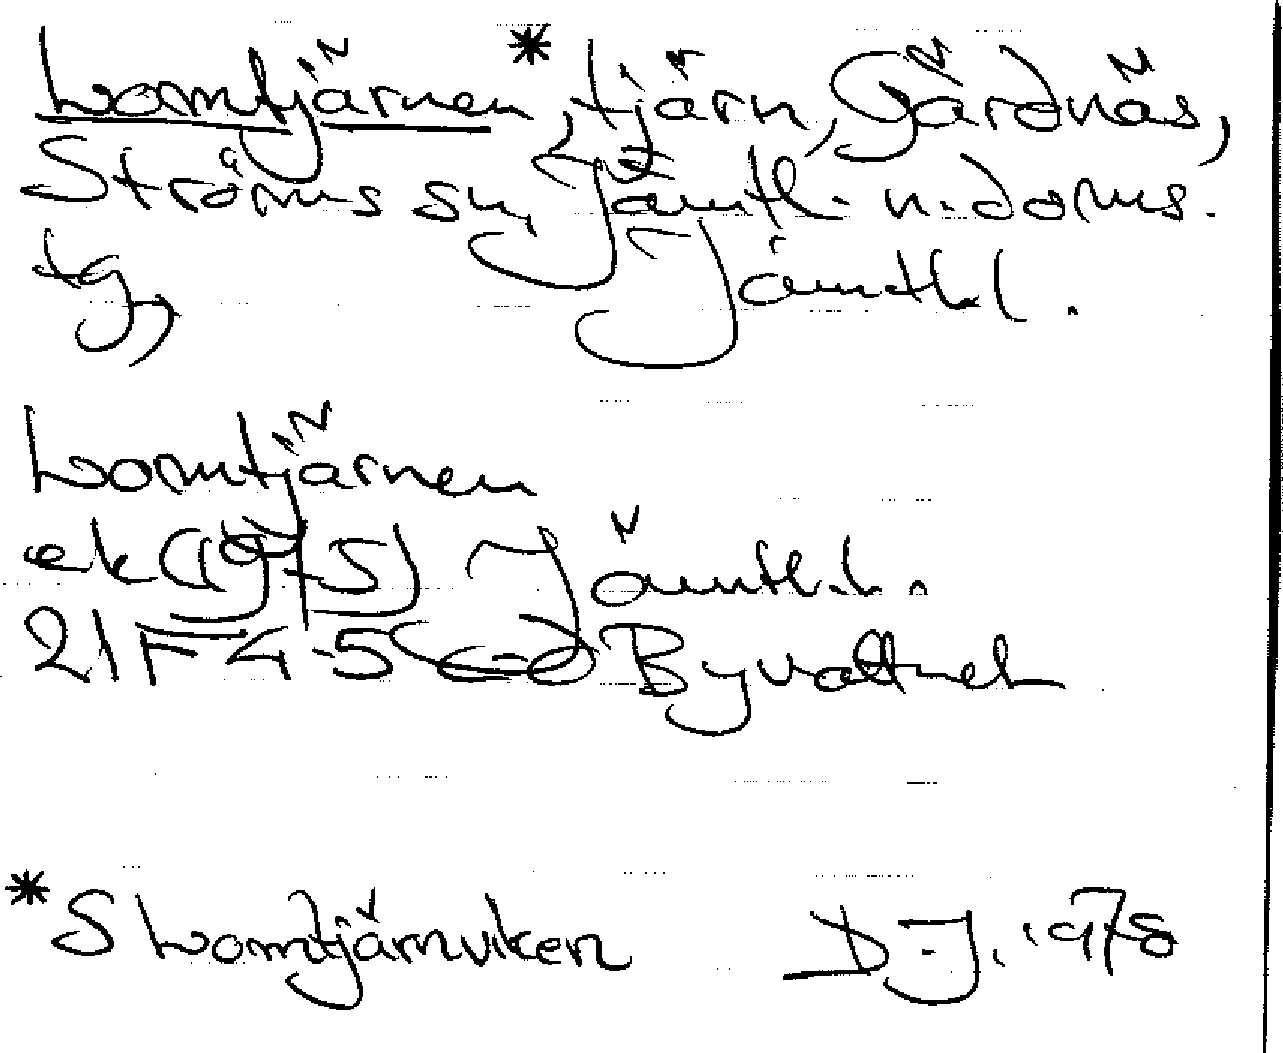 Lomtjärnen*, tjärn, Gärdnäs,
Ströms sn, Jämtl. n. doms.
tg, Jämtl. l.
Lomtjärnen
ek (1975) Jämtl. l.
21F 4-5 c-d Byvattnet
* S Lomtjärnviken D.J. 1978